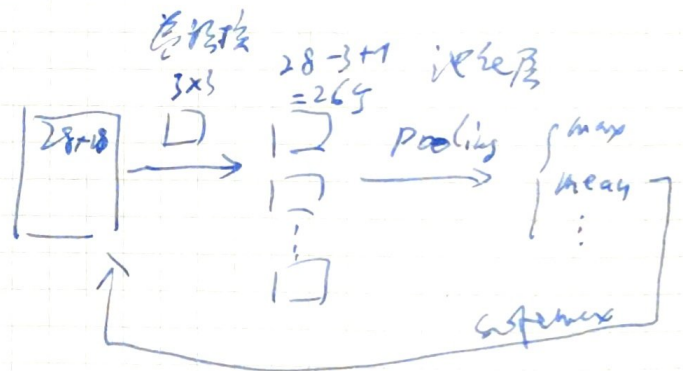 卷积核
3×3
28-3+1
=26个
池化层
28×28
pooling
max
mean
⋮
softmax